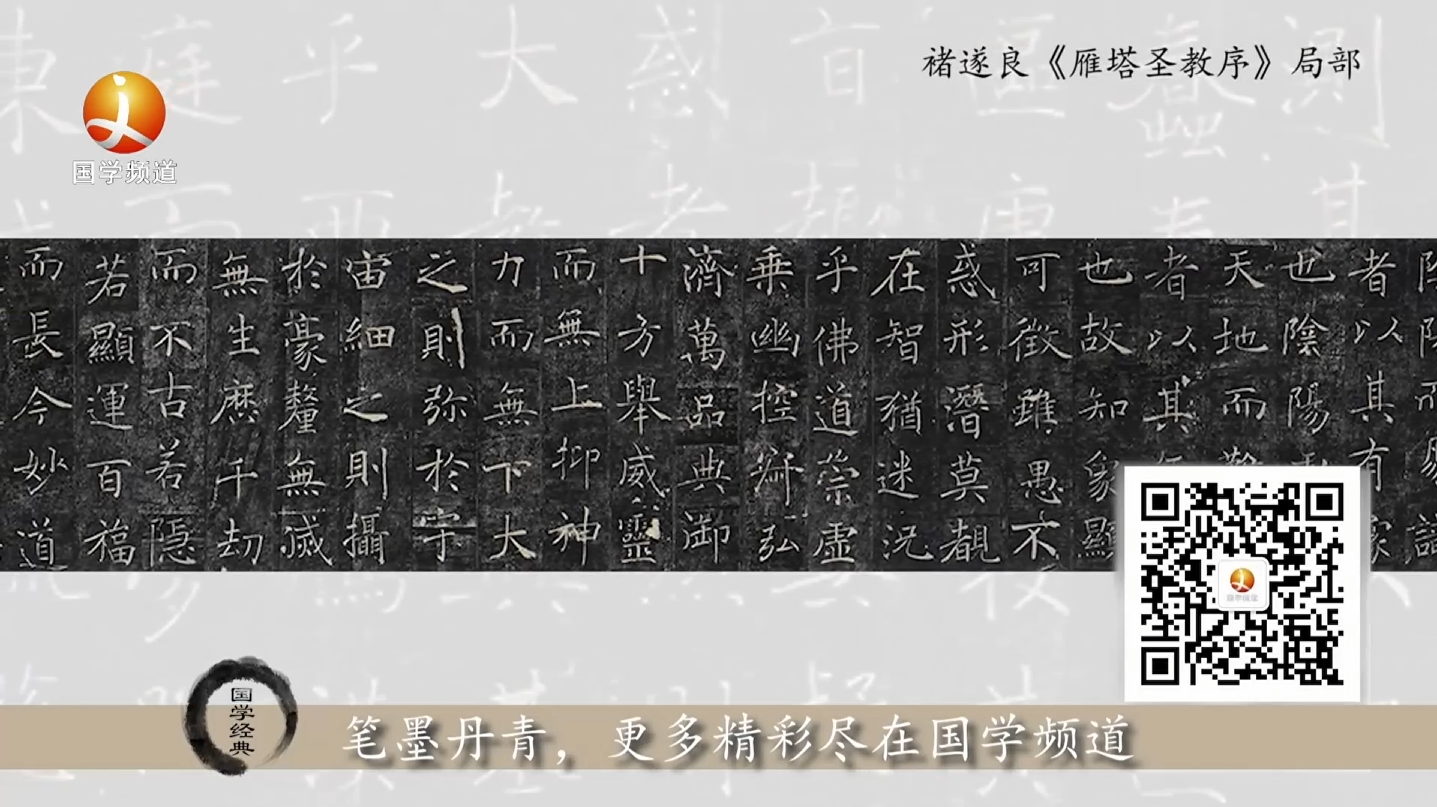 褚遂良《雁塔圣教序》局部
国学频道
者以其有象
也陰陽
天地而難
者以其無
也故知象顯
可徵雖愚不
惑形潛莫覩
在智猶迷況
乎佛道崇虛
乗幽控寂弘
濟萬品典御
十方舉威靈
而無上抑神
力而無下大
之則弥於宇
宙細之則攝
於豪釐無滅
無生歷千劫
而不古若隱
若顯運百福
而長今妙道
国学经典
笔墨丹青，更多精彩尽在国学频道